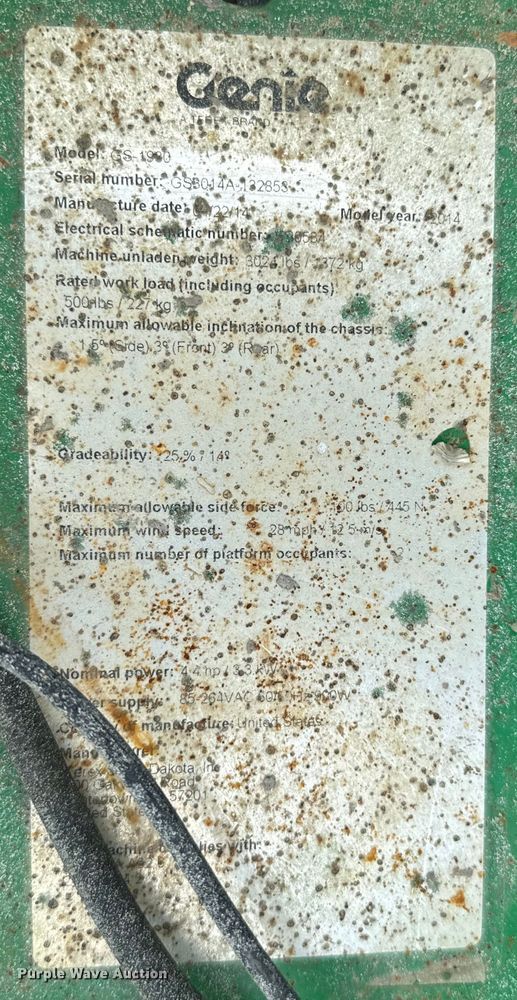 Genie
A TEREX BRAND
Model: GS-1930
Serial number: GS3014A-132853
Manufacture date: /22/14 Model year: 2014
Electrical schematic number:
Machine unladen weight: 3024 lbs / 1372 kg
Rated work load (including occupants):
500 lbs / 227 kg
Maximum allowable inclination of the chassis:
1.5º (Side) 3º (Front) 3º (Rear)
Gradeability: 25 % / 14º
Maximum allowable side force: 100 lbs / 445 N
Maximum wind speed: 28 mph / 12.5 m/s
Maximum number of platform occupants: 2
Nominal power: 4.4 hp / 3.3 kW
supply: 85-264VAC
of manufacture: United States
Dakota, Inc
Road
57201
with:
Purple Wave Auction